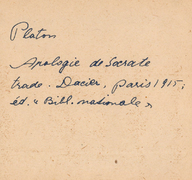 Platon
Apologie de Socrate
trad. Dacier, Paris 1915,
éd. « Bibl. nationale »